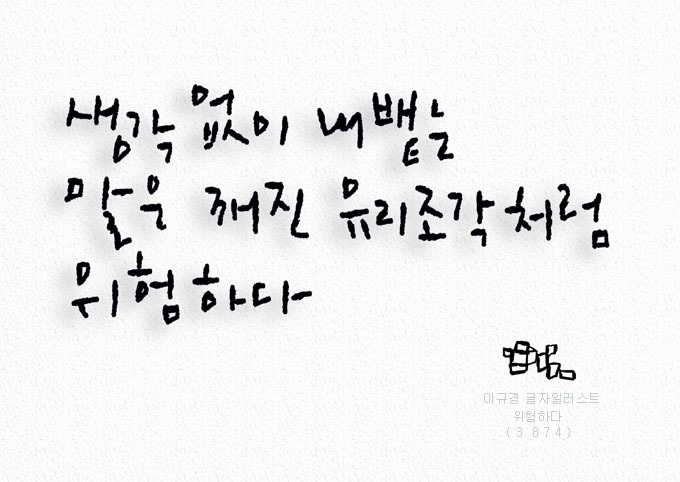 생각 없이 내뱉는
말은 깨진 유리조각처럼
위험하다
미규경 글자일러스트
위험하다
(3874)